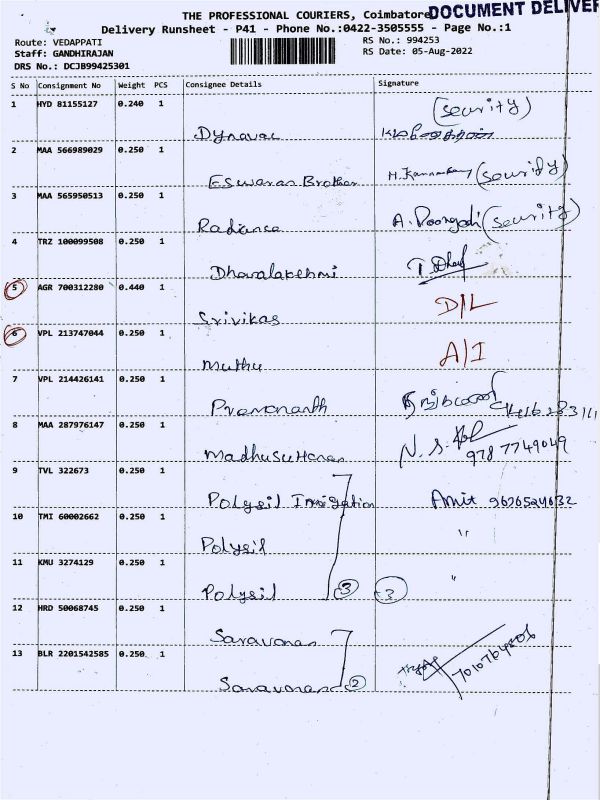 THE PROFESSIONAL COURIERS, Coimbatore DOCUMENT DELIVER
Delivery Runsheet - P41 - Phone No.:0422-3505555 - Page No.:1
Route: VEDAPPATI RS No.: 994253
Staff: GANDHIRAJAN RS Date: 05-Aug-2022
DRS No.: DCJB99425301
S No Consignment No Weight PCS Consignee Details Signature
1 HYD 81155127 0.240 1 (Security)
Dynavac
2 MAA 566989029 0.250 1 (Security)
Eswaran Brother
3 MAA 565950513 0.250 1 A. Poongodi (Security)
Radiance
4 TRZ 100099508 0.250 1
Dhanalakshmi
5 AGR 700312280 0.440 1 D/L
Srivikas
6 VPL 213747044 0.250 1 A/I
Muthu
7 VPL 214426141 0.250 1
8 MAA 287976147 0.250 1 N. S. 9787749049
9 TVL 322673 0.250 1
Polysil Irrigation Amit
10 TMI 60002662 0.250 1 "
Polysil
11 KMU 3274129 0.250 1 "
Polysil 3 3
12 HRD 50068745 0.250 1
Saravanan
13 BLR 2201542585 0.250 1
Saravanan 2